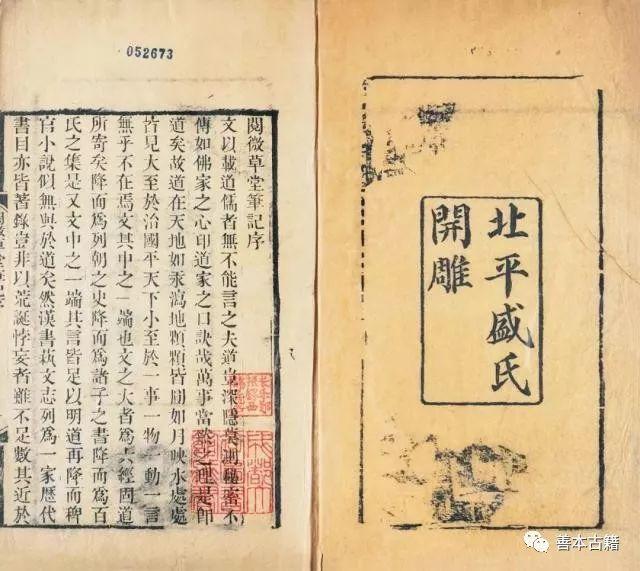 北平盛氏
開雕
052673
閱微草堂筆記序
文以載道儒者無不能言之夫道豈深隱莫測秘密不
傳如佛家之心印道家之口訣哉萬事當然之理是即
道矣故道在天地如汞瀉地顆顆皆圓如月映水處處
皆見大至於治國平天下小至於一事一物一動一言
無乎不在焉文其中之一端也文之大者爲六經固道
所寄矣降而爲列朝之史降而爲諸子之書降而爲百
氏之集是又文中之一端其言皆足以明道再降而稗
官小說似無與於道矣然漢書藝文志列爲一家歷代
書目亦皆著錄豈非以荒誕悖妄者雖不足數其近於
善本古籍